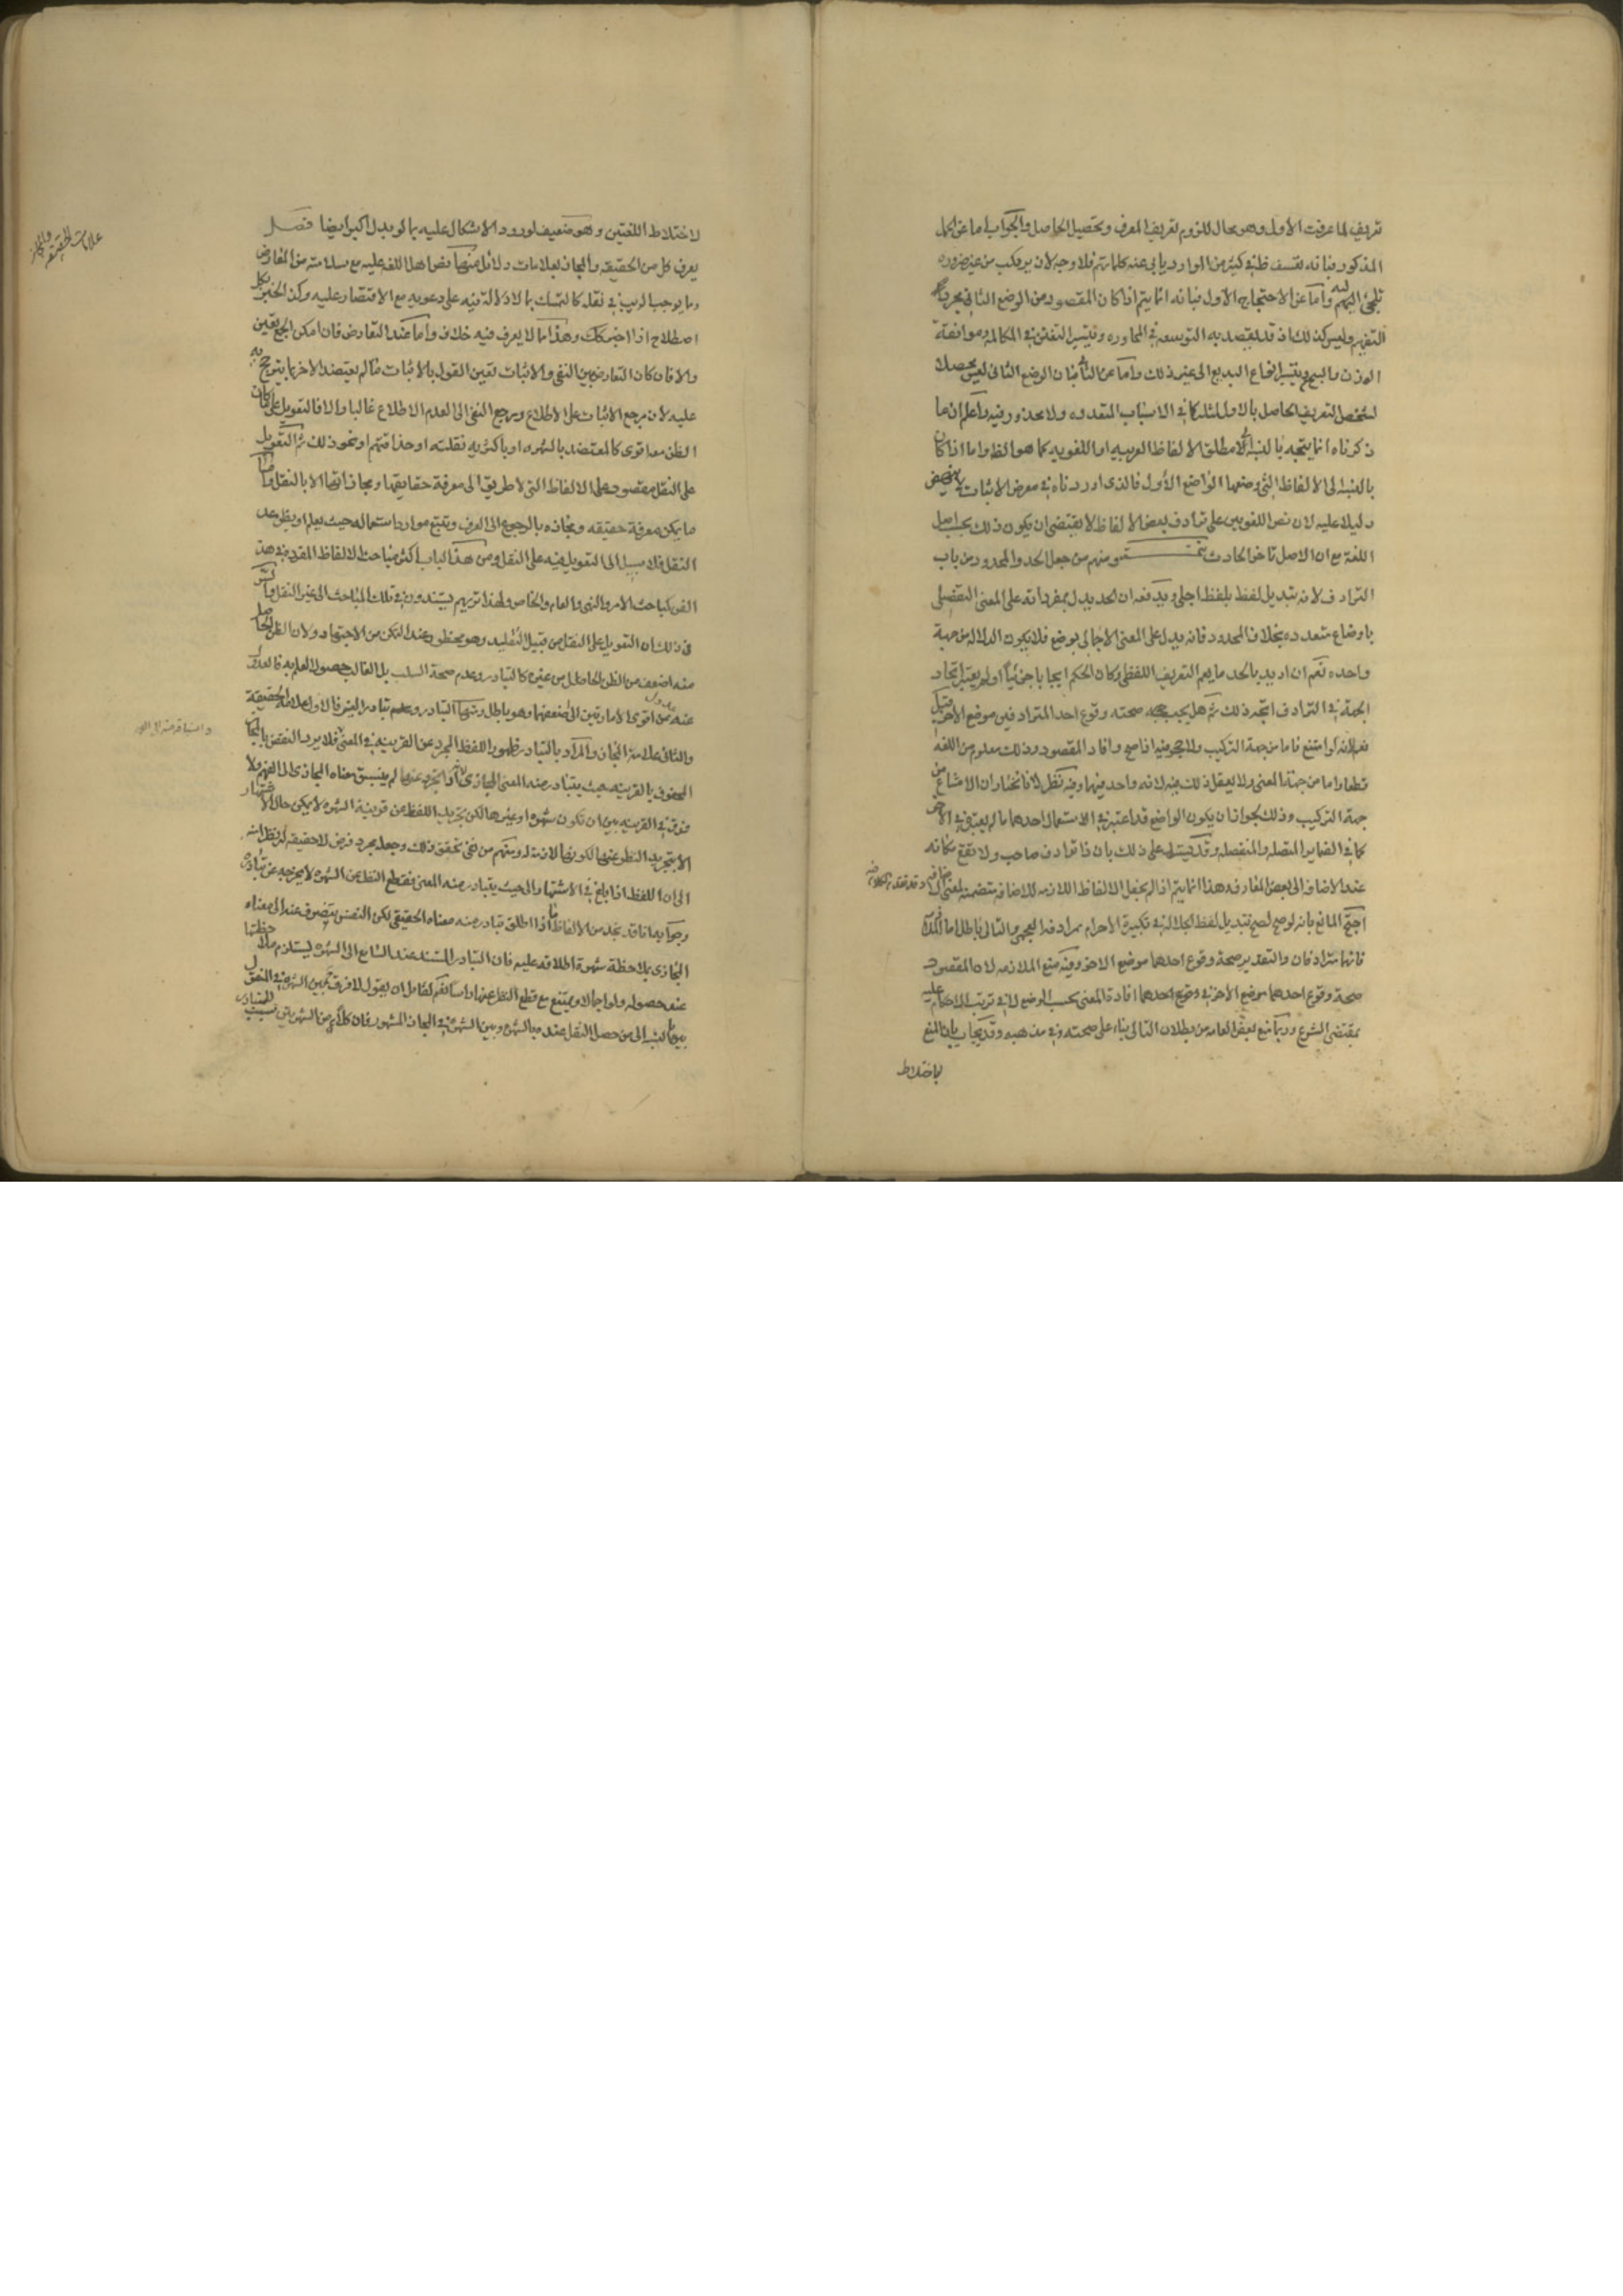 تعريف لما عرفت الاول وهو محال للزوم تعريف المعرف وتحصيل الحاصل والجواب اما عن الحمل
المذكور فبانه تعسف ظ في كثير من الموارد يابى عنه كلماتهم فلا وجه لان يرتكب من غير ضروره
تلجئ اليه واما عن الاحتجاج الاول فبانه انما يتم اذا كان المقصود من الوضع الثاني مجرد
التفهيم وليس كذلك اذ قد يقصد به التوسعة في المحاوره وتيسير التفنن في المكالمة وموافقة
الوزن والسجع وتيسر انواع البديع الى غير ذلك واما عن الثاني فبان الوضع الثاني ليس محصلا
لشخص التعريف الحاصل بالاول لمثله كما في الاسباب المتعدده ولا محذور فيه واعلم ان ما
ذكرناه انما يتجه بالنسبة الى مطلق الالفاظ العربيه او اللغويه كما هو الظ واما اذا كان
بالنسبة الى الالفاظ التي وضعها الواضع الاول فالذي اوردناه في معرض الاثبات لا ينهض
دليلا عليه لان نص اللغويين على ترادف بعض الالفاظ لا يقتضي ان يكون ذلك بحسب اصل
اللغة مع ان الاصل تاخر الحادث تتمة ومنهم من جعل الحد والمحدود من باب
الترادف لانه تبديل لفظ بلفظ اجلى ويدفعه ان الحد يدل بمفرداته على المعنى التفصيلي
باوضاع متعدده بخلاف المحدود فانه يدل على المعنى الاجمالي بوضع فلا يكون الدلاله من جهة
واحده نعم ان اريد بالحد ما يعم التعريف اللفظي وكان الحكم ايجابا جزئيا او لم يعتبر اتحاد
الجهة في الترادف اتجه ذلك ثم هل يجب صحته وقوع احد المترادفين موضع الاخر قيل
نعم لانه لو امتنع فاما من جهة التركيب ولا حجر فيه اذا صح وافاد المقصود وذلك معلوم من اللغة
قطعا واما من جهة المعنى ولا يعقل ذلك فيه لانه واحد فيهما وفيه نظر لانا نختار ان الامتناع من
جهة التركيب وذلك لجواز ان يكون الواضع قد اعتبر في الاستعمال احدهما ما لم يعتبر في الاخر
كما في الضماير المتصله والمنفصله وقد يستدل على ذلك بان ذا ترادف صاحب ولا تقع مكانه
عند الاضافه الى بعض المعارف وهذا انما يتم اذا لم يجعل الالفاظ اللازمه للاضافه متضمنه لمعنى
احتج المانع بانه لو صح لصح تبديل لفظ الجلالة في تكبيرة الاحرام بمرادفه العجمي والتالي باطل اما
فانها مترادفان والتقدير صحة وقوع احدهما موضع الاخر وفيه منع الملازمه لان المقصود
صحة وقوع احدهما موضع الاخر في وقوع احدهما افادة المعنى بحسب الوضع لا في ترتب الاحكام عليه
بمقتضى الشرع وربما منع بعض العامه من بطلان التالي بناء على صحته في مذهبه وقد يجاب بان المنع
لاختلاط
لاختلاط اللغتين وهو ضعيف لورود الاشكال عليه بما لو بدل اكبر ايضا فصل
يعرف كل من الحقيقه والمجاز بعلامات ودلائل منها نص اهل اللغه عليه مع سلامته من المعارض
وما يوجب الريب في نقله كالتمسك بما لا دلالة فيه على دعويه مع الاقتصار عليه وكذا الخبير بكل
اصطلاح اذا اخبر كك وهذا مما لا يعرف فيه خلاف واما عند التعارض فان امكن الجمع تعين
والا فان كان التعارض بين النفي والاثبات تعين القول بالاثبات ما لم يعتضد الاخر بما يترجح به
عليه لان مرجع الاثبات على الاطلاع ومرجع النفي الى العدم الاطلاع غالبا والا فالتعويل على ما كان
الظن معه اقوى كالمعتضد بالشهره او باكثريه نقلته او حذاقتهم او نحو ذلك ثم التعويل
على النقل مقصود على الالفاظ التي لا طريق الى معرفة حقايقها ومجازاتها الا بالنقل واما
ما يمكن معرفة حقيقته ومجازه بالرجوع الى العرف وتتبع موارد استعماله حيث يعلم او يظن عدم
النقل فلا سبيل الى التعويل فيه على النقل ومن هذا الباب اكثر مباحث الالفاظ المقرره في هذا
الفن كمباحث الامر والنهي والعام والخاص ولهذا تريهم يستندون في تلك المباحث الى غير النقل والسر
في ذلك ان التعويل على النقل من قبيل التقليد وهو محظور عند التمكن من الاجتهاد ولان الظن الحاصل
منه اضعف من الظن الحاصل من غيره كالتبادر وعدم صحة السلب بل الغالب حصول العلم به فالعدول
عنه عدول من اقوى الامارتين الى اضعفهما وهو باطل ومنها التبادر وعدم تبادر الغير فالاول علامة الحقيقة
والثاني علامة المجاز والمراد بالتبادر ظهور اللفظ المجرد عن القرينه في المعنى فلا يرد النقض بالمجاز
المحفوف بالقرينه حيث يتبادر منه المعنى المجازي لانه اذا جرد عنها لم يسبق معناه المجازي الى الفهم ولا
فرق في القرينه بين ان تكون شهرة او غيرها لكن تجريد اللفظ عن قرينة الشهره لا يمكن حال الاشتهار
الا بتجريد النظر عنها لكونها لازمة له ومنهم من نفى تحقق ذلك وجعله مجرد فرض لا حقيقه له نظرا منه
الى ان اللفظ اذا بلغ في الاشتهار الى حيث يتبادر منه المعنى فقطع النظر عن الشهره لا يخرجه عن تبادره
وجوابه انا قد نجد من الالفاظ ما اذا اطلق تبادر منه معناه الحقيقي لكن النفس ينصرف عنه الى معناه
المجازي بملاحظة شهرة اطلاقه عليه فان التبادر المستند عند السامع الى الشهره يستلزم ملاحظتها
عند حصوله ولو اجمالا ويمتنع مع قطع النظر عنها واسا نعم لقائل ان يقول لا فرق بين الشهره في المنقول
بالنسبة الى من حصل النقل عنده بالشهره وبين الشهره في المجاز المشهور فان كلا من الشهرتين سبب للتبادر
علامات الحقيقة والمجاز